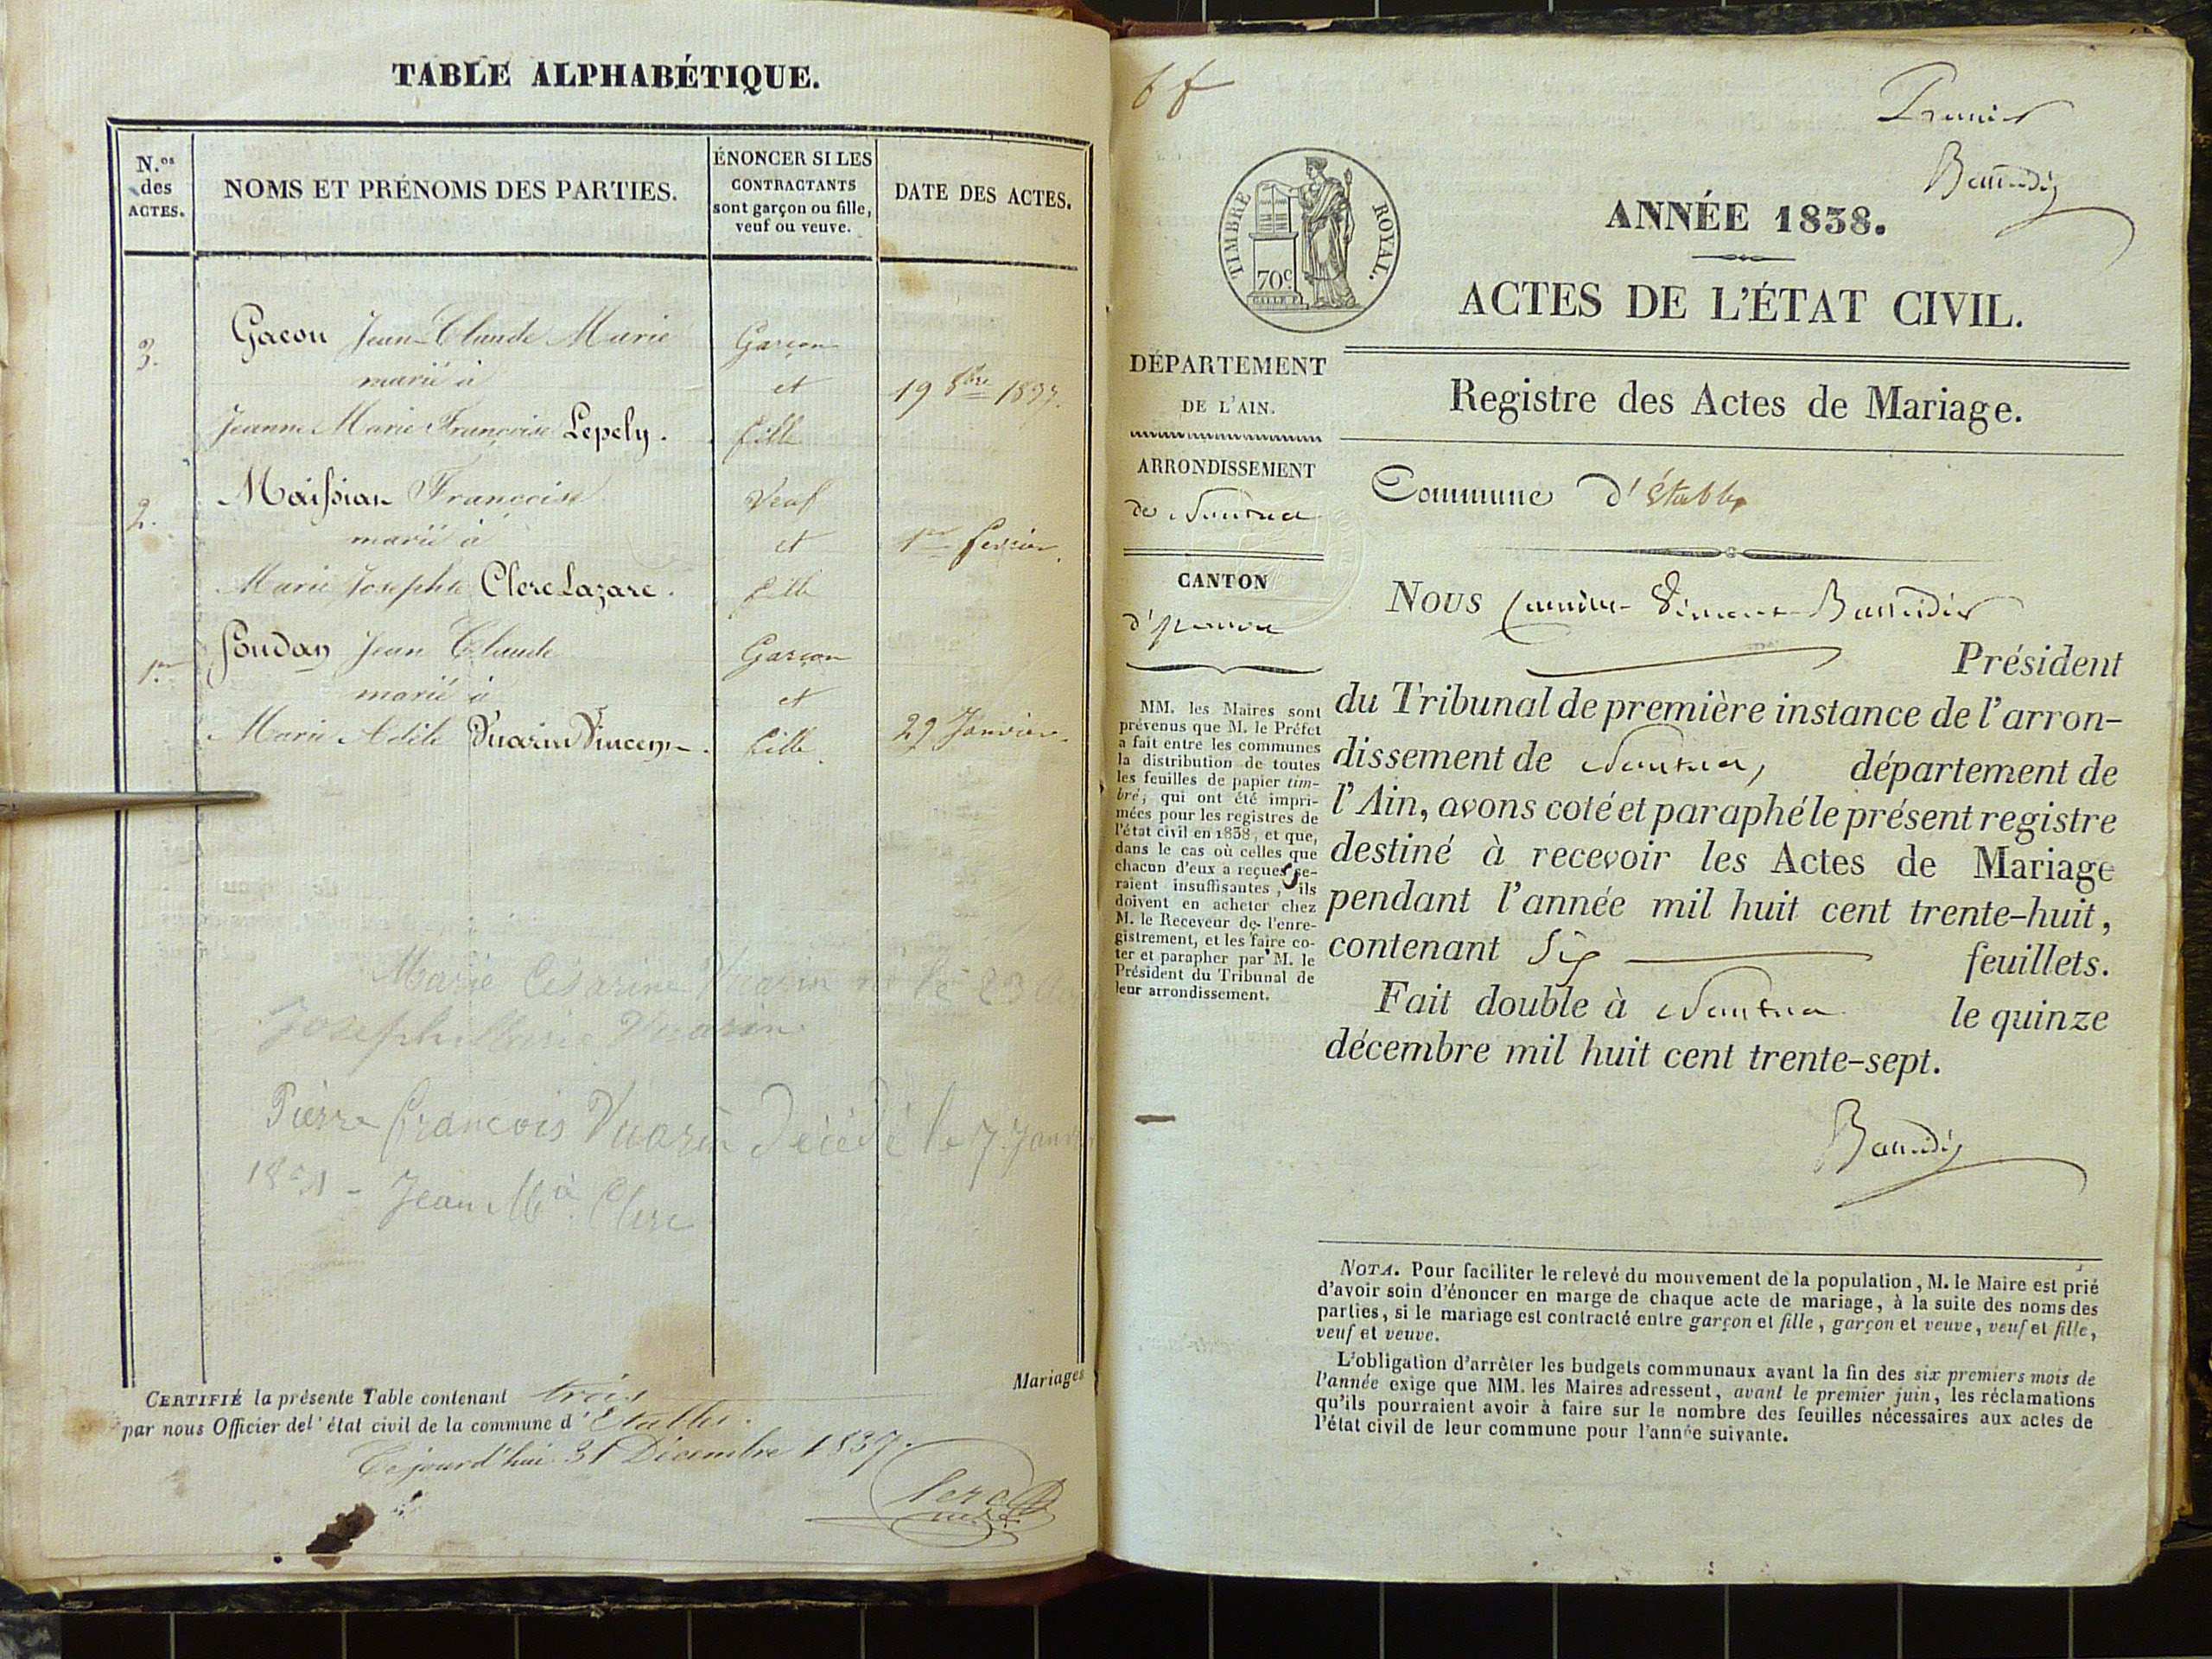 TABLE ALPHABÉTIQUE.
N.os des ACTES.
NOMS ET PRÉNOMS DES PARTIES.
ÉNONCER SI LES
CONTRACTANTS
sont garçon ou fille,
veuf ou veuve.
DATE DES ACTES.
3. Gacon Jean-Claude Marie Garçon
marié à et 19 8bre 1837.
Jeanne Marie Françoise Lepely. fille
2. Maissiau François Veuf
marié à et 1er fevrier.
Marie Josephte Clerc Lazare. fille
1er Goudan Jean Claude Garçon
marié à et
Marie Adèle Vuarin Vincent. fille 29 Janvier.
Marie Césarine Vuarin né le 23
Joseph Marie Vuarin
Pierre François Vuarin Décédé le 7 Janv
Jean Clerc
Mariages
CERTIFIÉ la présente Table contenant trois
par nous Officier del' état civil de la commune d' Etables.
Cejourd'hui 31 Décembre 1837.
Clerc
6 f
Premier
TIMBRE ROYAL.
70c
ANNÉE 1838.
ACTES DE L'ÉTAT CIVIL.
DÉPARTEMENT
DE L'AIN.
ARRONDISSEMENT
de Nantua
CANTON
d'
Registre des Actes de Mariage.
Commune d'étables
MM. les Maires sont
prévenus que M. le Préfet
a fait entre les communes
la distribution de toutes
les feuilles de papier tim-
bré, qui ont été impri-
mées pour les registres de
l'état civil en 1838, et que,
dans le cas où celles que
chacun d'eux a reçues se-
raient insuffisantes, ils
doivent en acheter chez
M. le Receveur de l'enre-
gistrement, et les faire co-
ter et parapher par M. le
Président du Tribunal de
leur arrondissement.
Nous Vincent
Président
du Tribunal de première instance de l'arron-
dissement de Nantua, département de
l'Ain, avons coté et paraphé le présent registre
destiné à recevoir les Actes de Mariage
pendant l'année mil huit cent trente-huit,
contenant Six feuillets.
Fait double à Nantua le quinze
décembre mil huit cent trente-sept.
NOTA. Pour faciliter le relevé du mouvement de la population, M. le Maire est prié
d'avoir soin d'énoncer en marge de chaque acte de mariage, à la suite des noms des
parties, si le mariage est contracté entre garçon et fille, garçon et veuve, veuf et fille,
veuf et veuve.
L'obligation d'arrêter les budgets communaux avant la fin des six premiers mois de
l'année exige que MM. les Maires adressent, avant le premier juin, les réclamations
qu'ils pourraient avoir à faire sur le nombre des feuilles nécessaires aux actes de
l'état civil de leur commune pour l'année suivante.